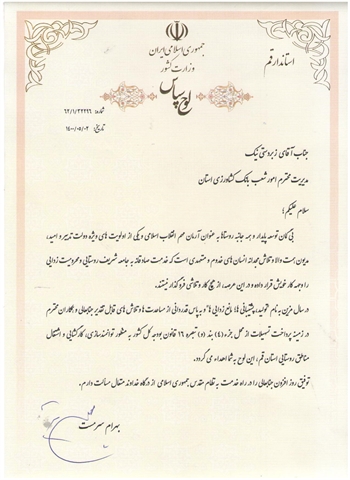 جمهوری اسلامی ایران
وزارت کشور
استاندار قم
لوح سپاس
شماره: ۶۲/۱/۳۲۲۹۶
تاریخ: ۱۴۰۰/۰۵/۰۲
جناب آقای زبردستی نیک
مدیریت محترم امور شعب بانک کشاورزی استان
سلام علیکم؛
بی گمان توسعه پایدار و همه جانبه روستاها به عنوان آرمان مهم انقلاب اسلامی و یکی از اولویت های ویژه دولت تدبیر و امید،
مدیون همت والا و تلاش مجدانه انسان های خدوم و متعهدی است که خدمت صادقانه به جامعه شریف روستایی و محرومیت زدایی
را وجهه کار خویش قرار داده و در این عرصه، از هیچ کار و تلاشی فروگذار نیستند.
در سال مزین به نام «تولید، پشتیبانی ها، مانع زدایی ها» و به پاس قدردانی از مساعدت ها و تلاش های قابل تقدیر جنابعالی و همکاران محترم
در زمینه پرداخت تسهیلات از محل جزء (۴) بند (و) تبصره ۱۶ قانون بودجه کل کشور به منظور توانمندسازی، کارگشایی و اشتغال
مناطق روستایی استان قم، این لوح به شما اهداء می گردد.
توفیق روز افزون جنابعالی را در راه خدمت به نظام مقدس جمهوری اسلامی از درگاه خداوند متعال مسألت دارم.
بهرام سرمست